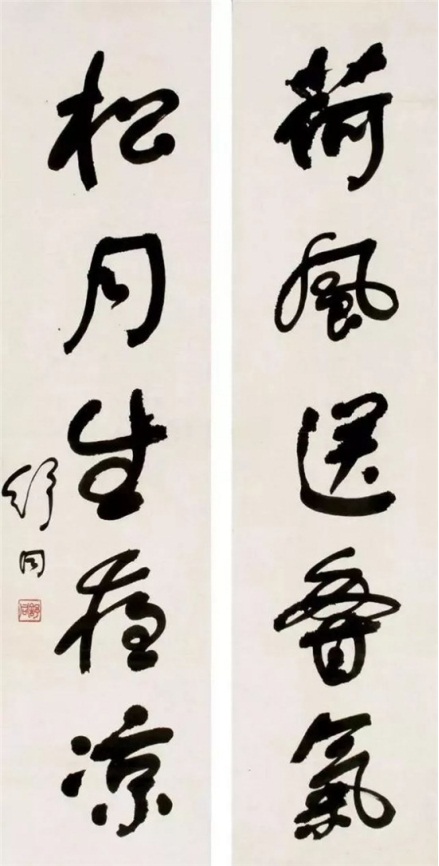 荷風送香氣
松月生夜凉
舒同